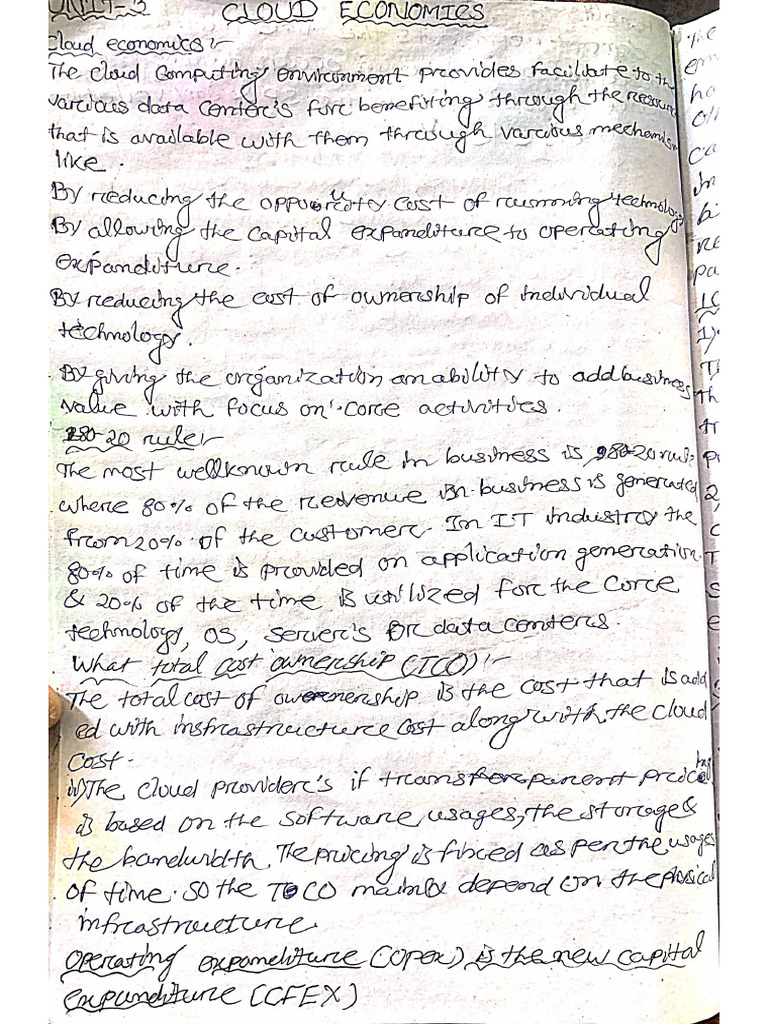 UNIT-3 CLOUD ECONOMICS
Cloud economics:-
The Cloud Computing environment provides facilitate to the
various data center's for benefiting through the resourc
that is available with them through various mechanism
like.
By reducing the oppourity cost of running technology
By allowing the capital expanditure to operating
expanditure.
By reducing the cost of ownership of individual
technology.
By giving the organization an ability to add business
value with focus on core activities.
80-20 rule:-
The most wellknown rule in business is 80-20 rul:
where 80% of the revenue in business is generated
from 20% of the customer. In IT industry the
80% of time is provided on application generation
& 20% of the time is utilized for the core
technology, OS, server's or data centers.
What total cost ownership (TCO):-
The total cost of ownership is the cost that is add
ed with insfrastructure cost along with the cloud
cost.
ii) The cloud provider's if transparent pricing
is based on the software usages, the storage &
the bandwidth. The pricing is fixced as per the usages
of time. so the TCO mainly depend on the physical
infrastructure.
Operating expanditure (opex) is the new capital
expanditure (CFEX)